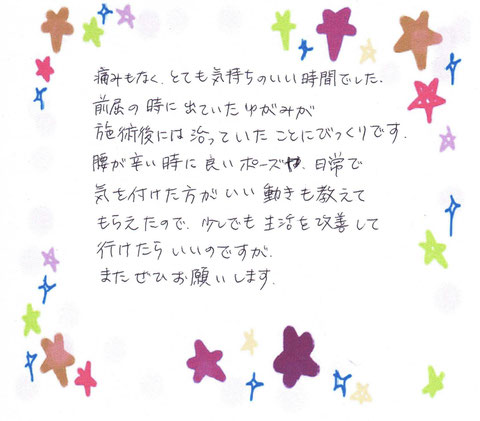 痛みもなく、とても気持ちのいい時間でした.
前屈の時に出ていたゆがみが
施術後には治っていたことにびっくりです.
腰が辛い時に良いポーズや、日常で
気を付けた方がいい動きも教えて
もらえたので、少しでも生活を改善して
行けたらいいのですが.
またぜひお願いします.